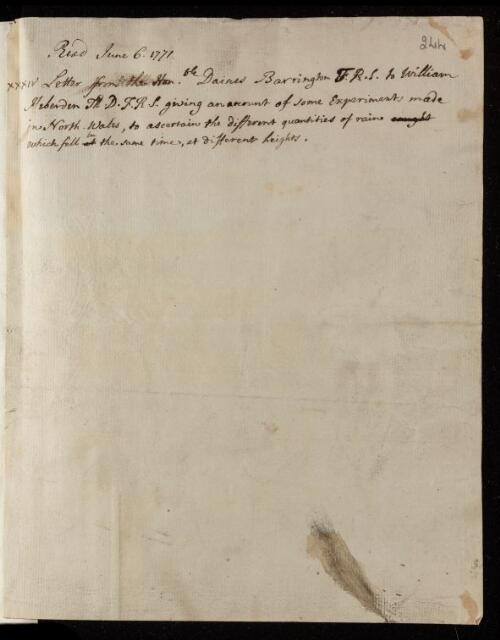 244
Read June 6. 1771
XXXIV Letter from the Hon.ble Daines Barrington F.R.S. to William
Heberden M.D. F.R.S. giving an account of some Experiments made
in North Wales, to ascertain the different quantities of rain caught
which fell in at the same time, at different heights.